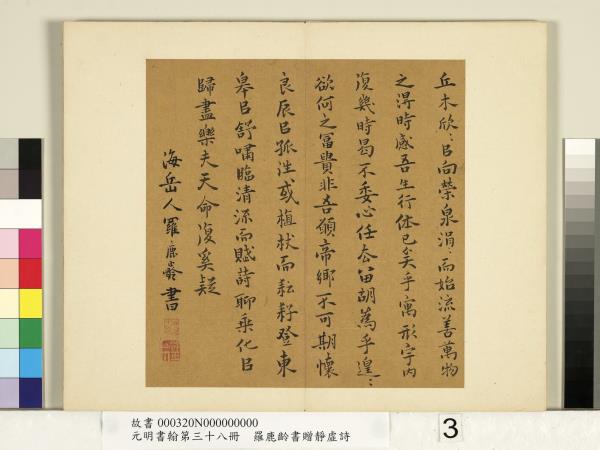 丘木欣〻㠯向榮泉涓〻而始流善萬物
之得時感吾生行休已矣乎寓形宇内
復幾時曷不委心任去留胡為乎遑〻
欲何之冨貴非吾願帝鄉不可期懷
良辰㠯孤往或植杖而耘耔登東
皋㠯舒嘯臨清流而賦詩聊乘化㠯
歸盡樂夫天命復奚疑
海岳人羅鹿齡書
故書 000320N000000000
元明書翰第三十八冊 羅鹿齡書贈靜虛詩
3